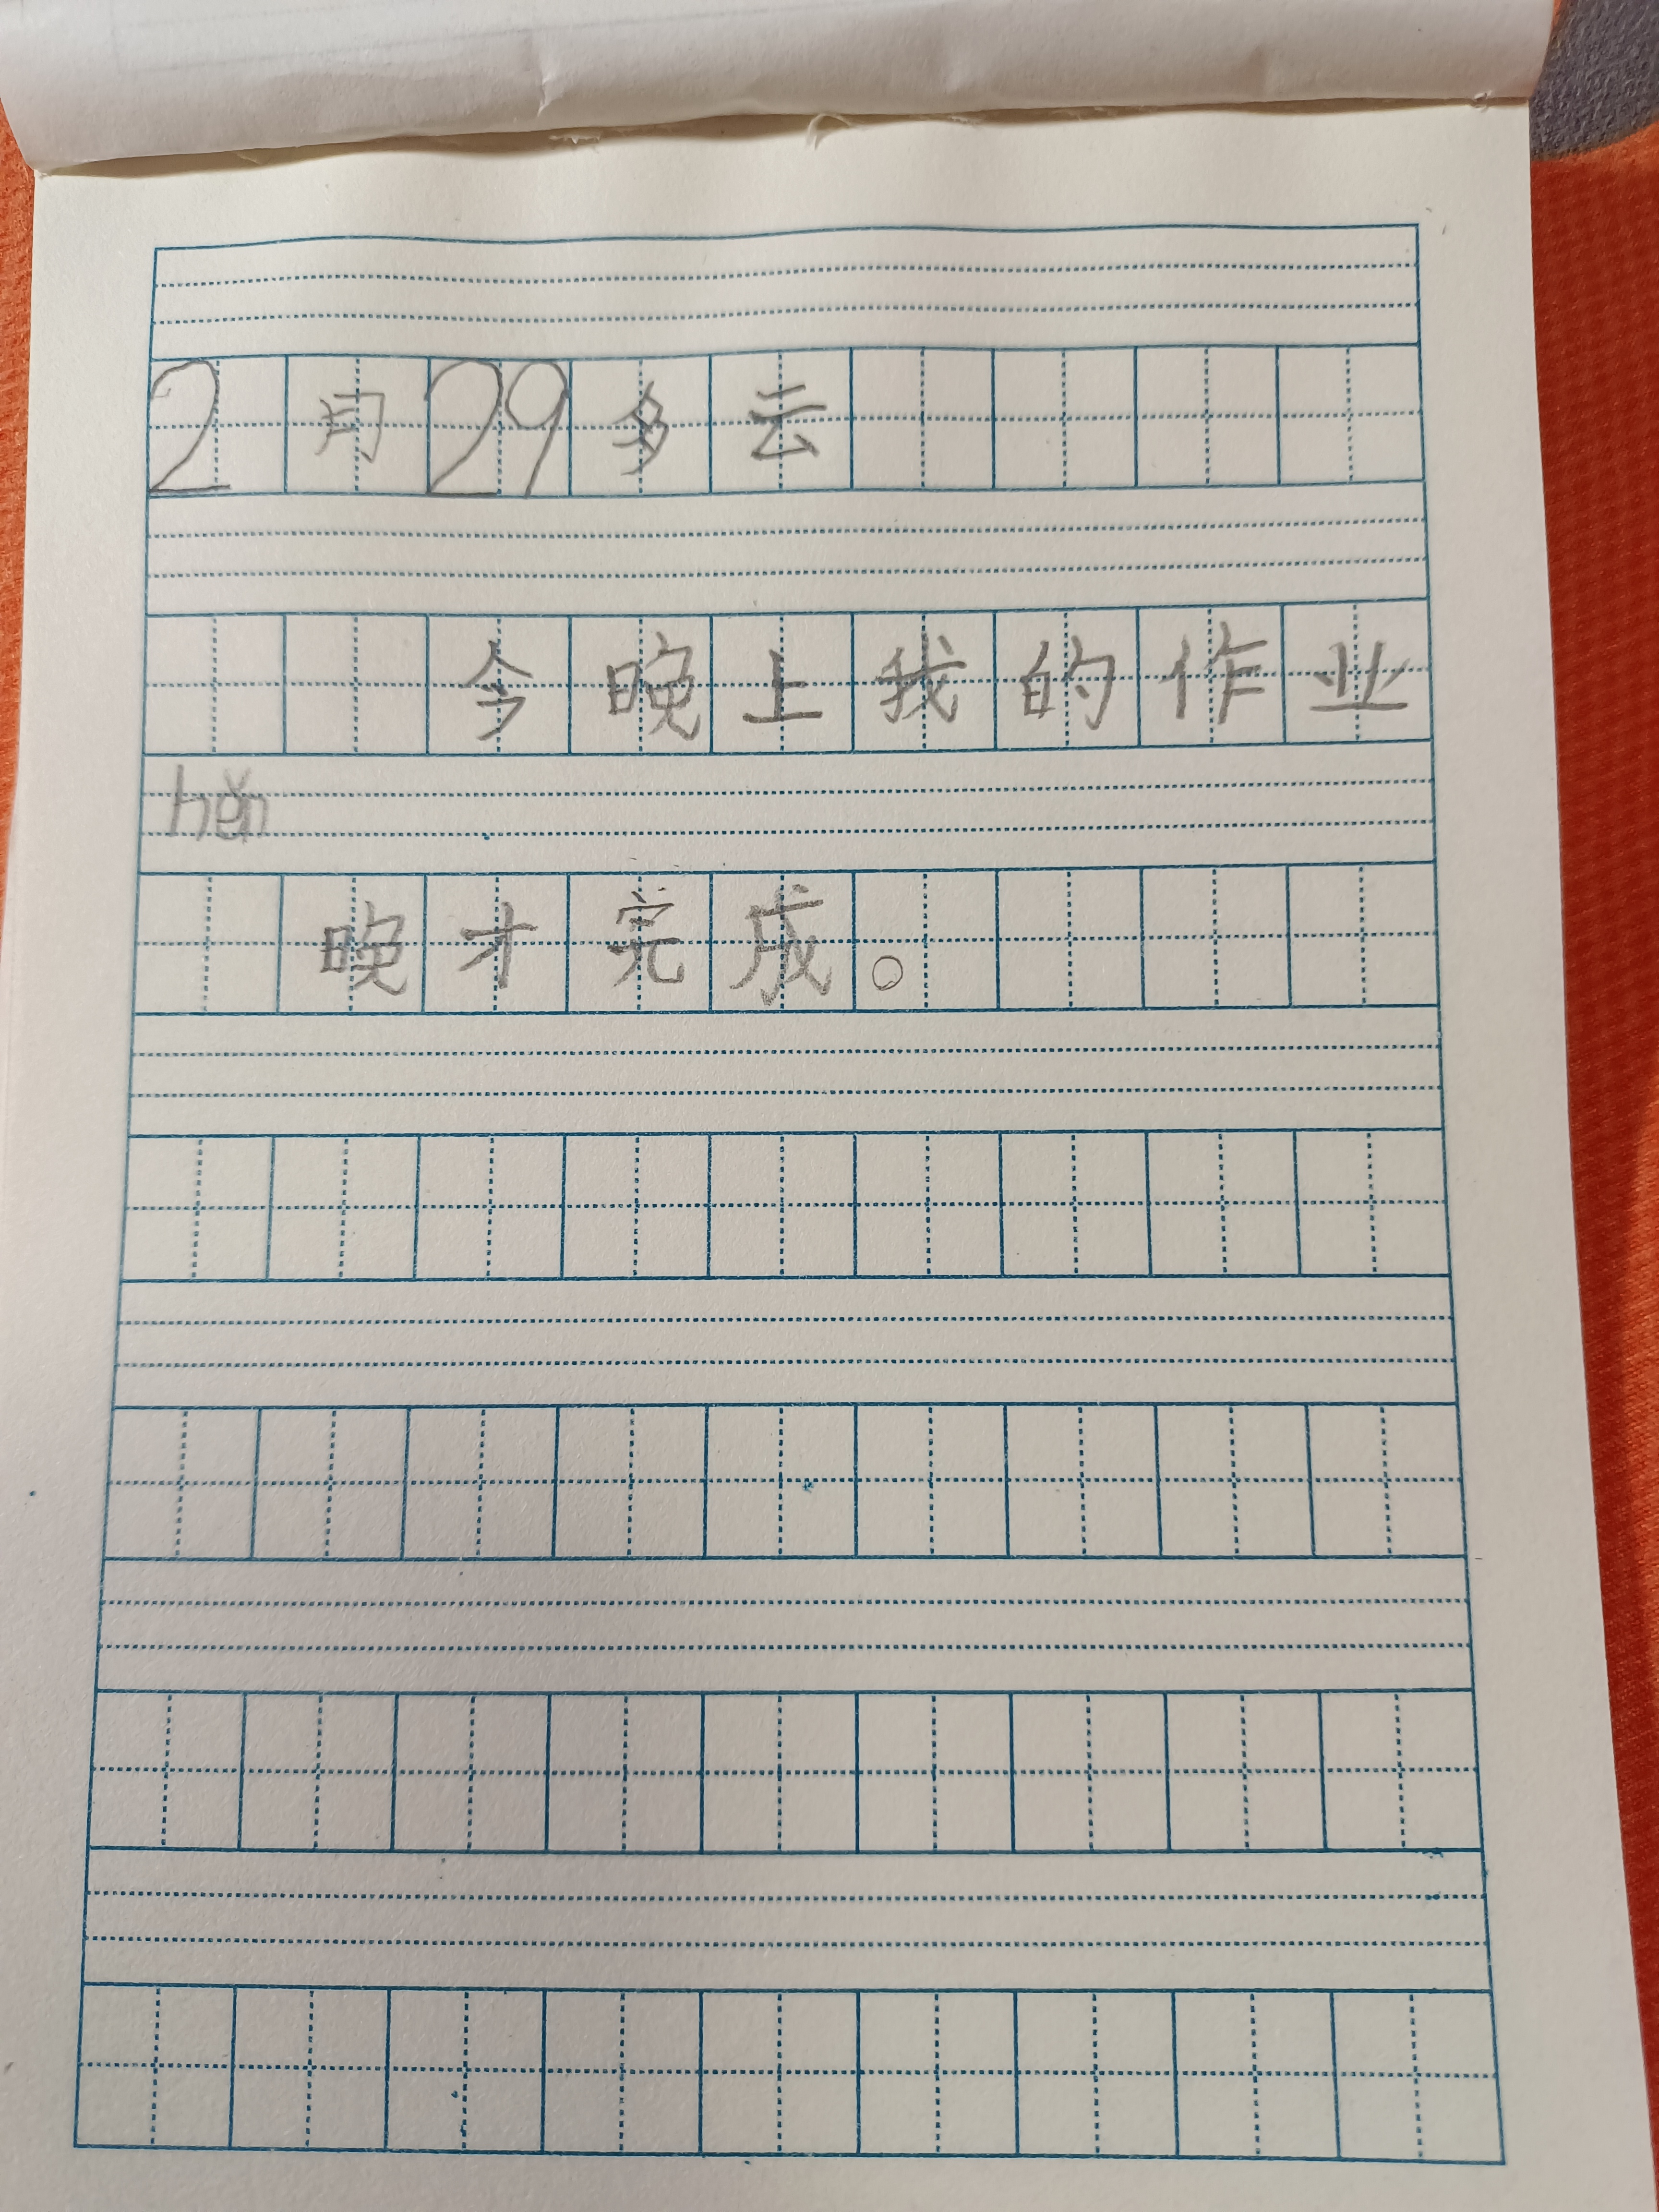 2月29多云
今晚上我的作业
hěn
晚才完成。